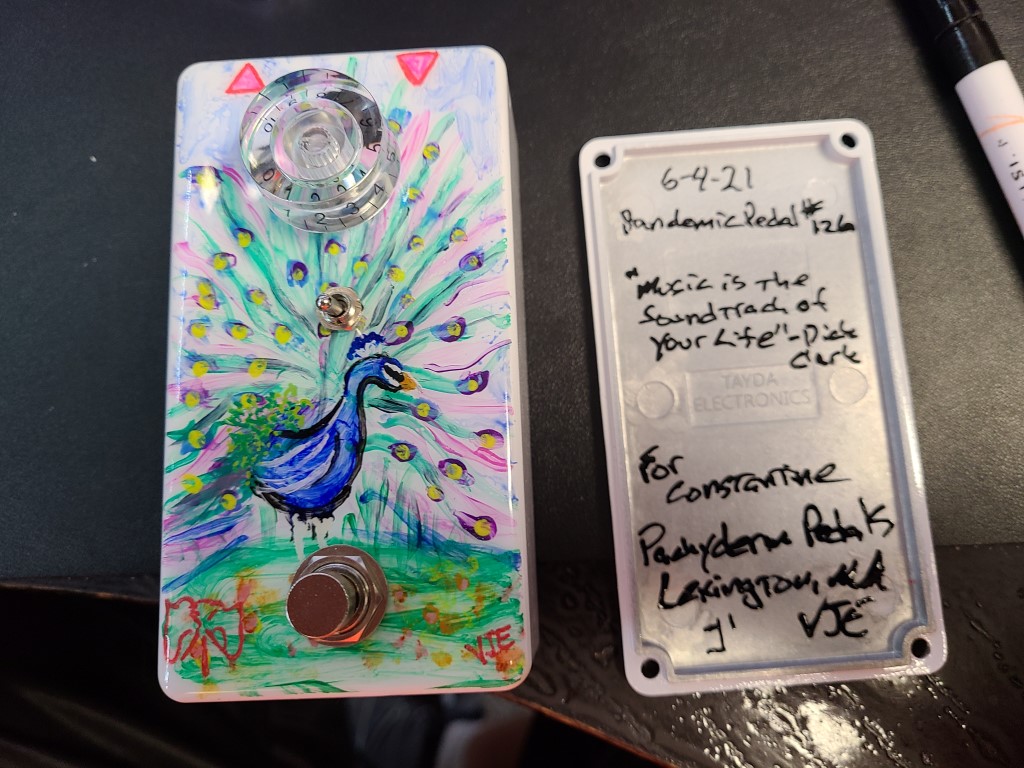 VJE
6-4-21
Pandemic Pedal #126
"Music is The
SoundTrack of
your Life" - Dick
Clark
TAYDA
ELECTRONICS
For
Constantine
Pachyderm Pedals
Lexington, MA
VJE